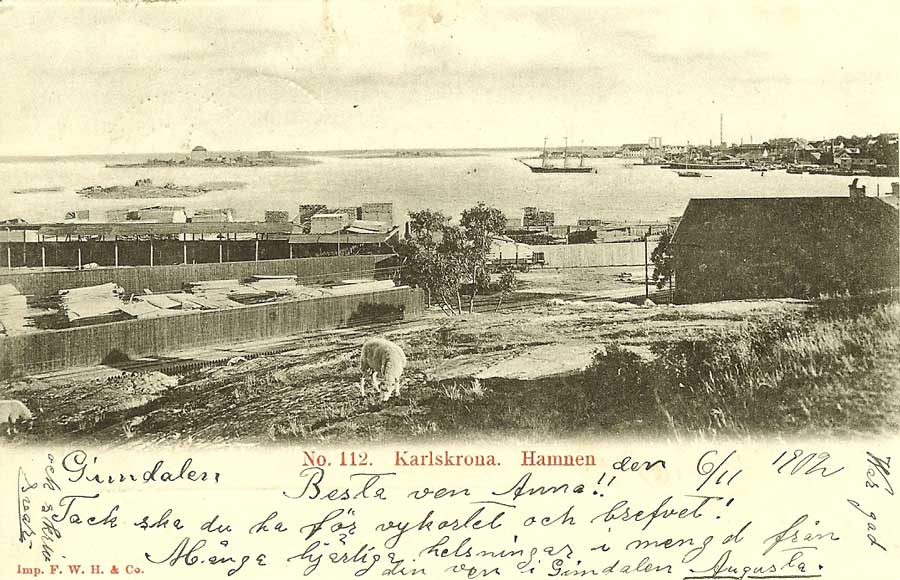 No. 112. Karlskrona. Hamnen
Gimdalen den 6/11 1902
Besta ven Anna!!
Tack ska du ha för vykortet och brefvet!
Många hjärtliga helsningar i mengd från
din ven i Gimdalen Augusta.
Var god
och skriv
svar
Imp. F. W. H. & Co.